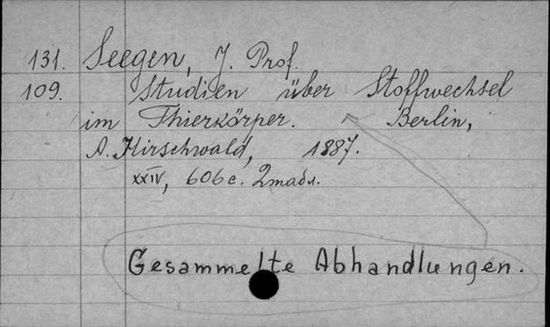 131. Seegen, J. Prof.
109. Studien über Stoffwechsel
im Thierkörper. Berlin,
A. Hirschwald, 1887.
XXIV, 606 с. 2 табл.
Gesammelte Abhandlungen.